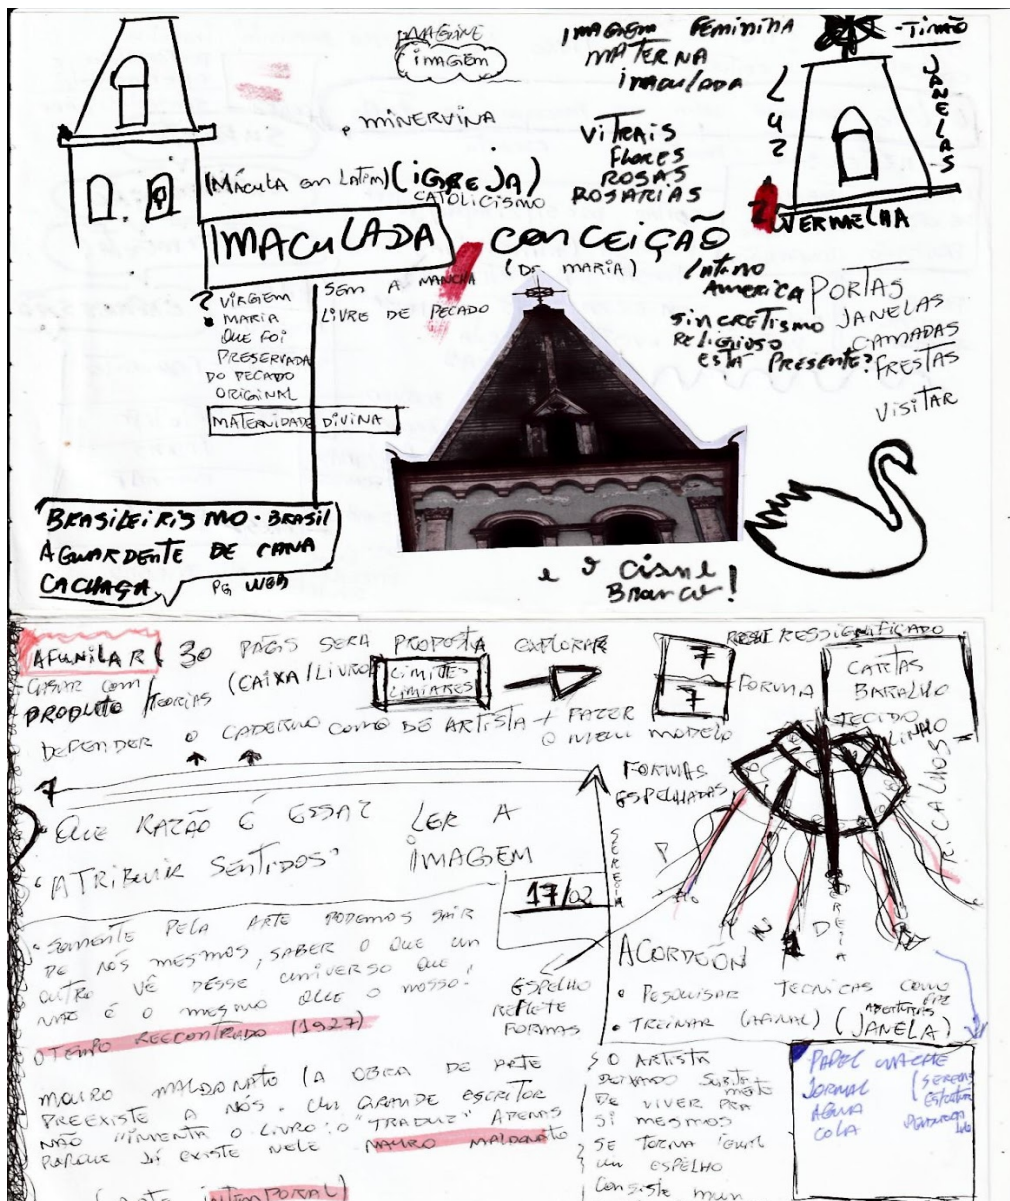 IMAGINE
imagEm
• MINERVINA
IMAGEM FEMININA
MATERNA
IMACULADA
VITRAIS
FLORES
ROSAS
ROSARIAS
-TIMÃO
JANELAS
LUZ
VERMELHA
(Mácula em Latim) (IGREJA)
CATOLICISMO
IMACULADA CONCEIÇÃO
(DE MARIA)
? VIRGEM
MARIA
QUE FOI
PRESERVADA
DO PECADO
ORIGINAL
SEM A MANCHA
LIVRE DE PECADO
MATERNIDADE DIVINA
America
SINCRETISMO
RELIGIOSO
ESTÁ PRESENTE?
PORTAS
JANELAS
CAMADAS
FRESTAS
VISITAR
BRASILEIRISMO - BRASIL
AGUARDENTE DE CANA
CACHAÇA
PG WEB
e o cisne
Branco!
AFUNILAR
30 PÁGS SERA PROPOSTA EXPLORAR
CASAR COM
PRODUTO / TEORIAS
(CAIXA/LIVRO)
LIMITES
LIMIARES
7
7
FORMA
RESSIGNIFICADO
CARTAS
BARALHO
TECIDO
LINHO
DEFENDER O CADERNO COMO DE ARTISTA + FAZER
O MEU MODELO
FORMAS
ESPELHADAS
• QUE RAZÃO É ESSA?
LER A
IMAGEM
"ATRIBUIR SENTIDOS"
17/02
SEREIA
• SOMENTE PELA ARTE PODEMOS SAIR
DE NÓS MESMOS, SABER O QUE UM
OUTRO VÊ DESSE UNIVERSO QUE
NÃO É O MESMO QUE O NOSSO.
O TEMPO REECONTRADO (1927)
ESPELHO
REFLETE
FORMAS
ACORDEÓN
• PESQUISAR TECNICAS COMO
• TREINAR (JANELA)
MAURO MALDONATO (A OBRA DE ARTE
PREEXISTE A NÓS. UM GRANDE ESCRITOR
NÃO "INVENTA O LIVRO: O "TRADUZ" APENAS
PORQUE JÁ EXISTE NELE MAURO MALDONATO
INTEMPORAL)
SO ARTISTA
DE VIVER PRA
SI MESMOS
SE TORNA IGUAL
UM ESPELHO
Consiste
PAPEL MACHE
JORNAL
AGUA
COLA